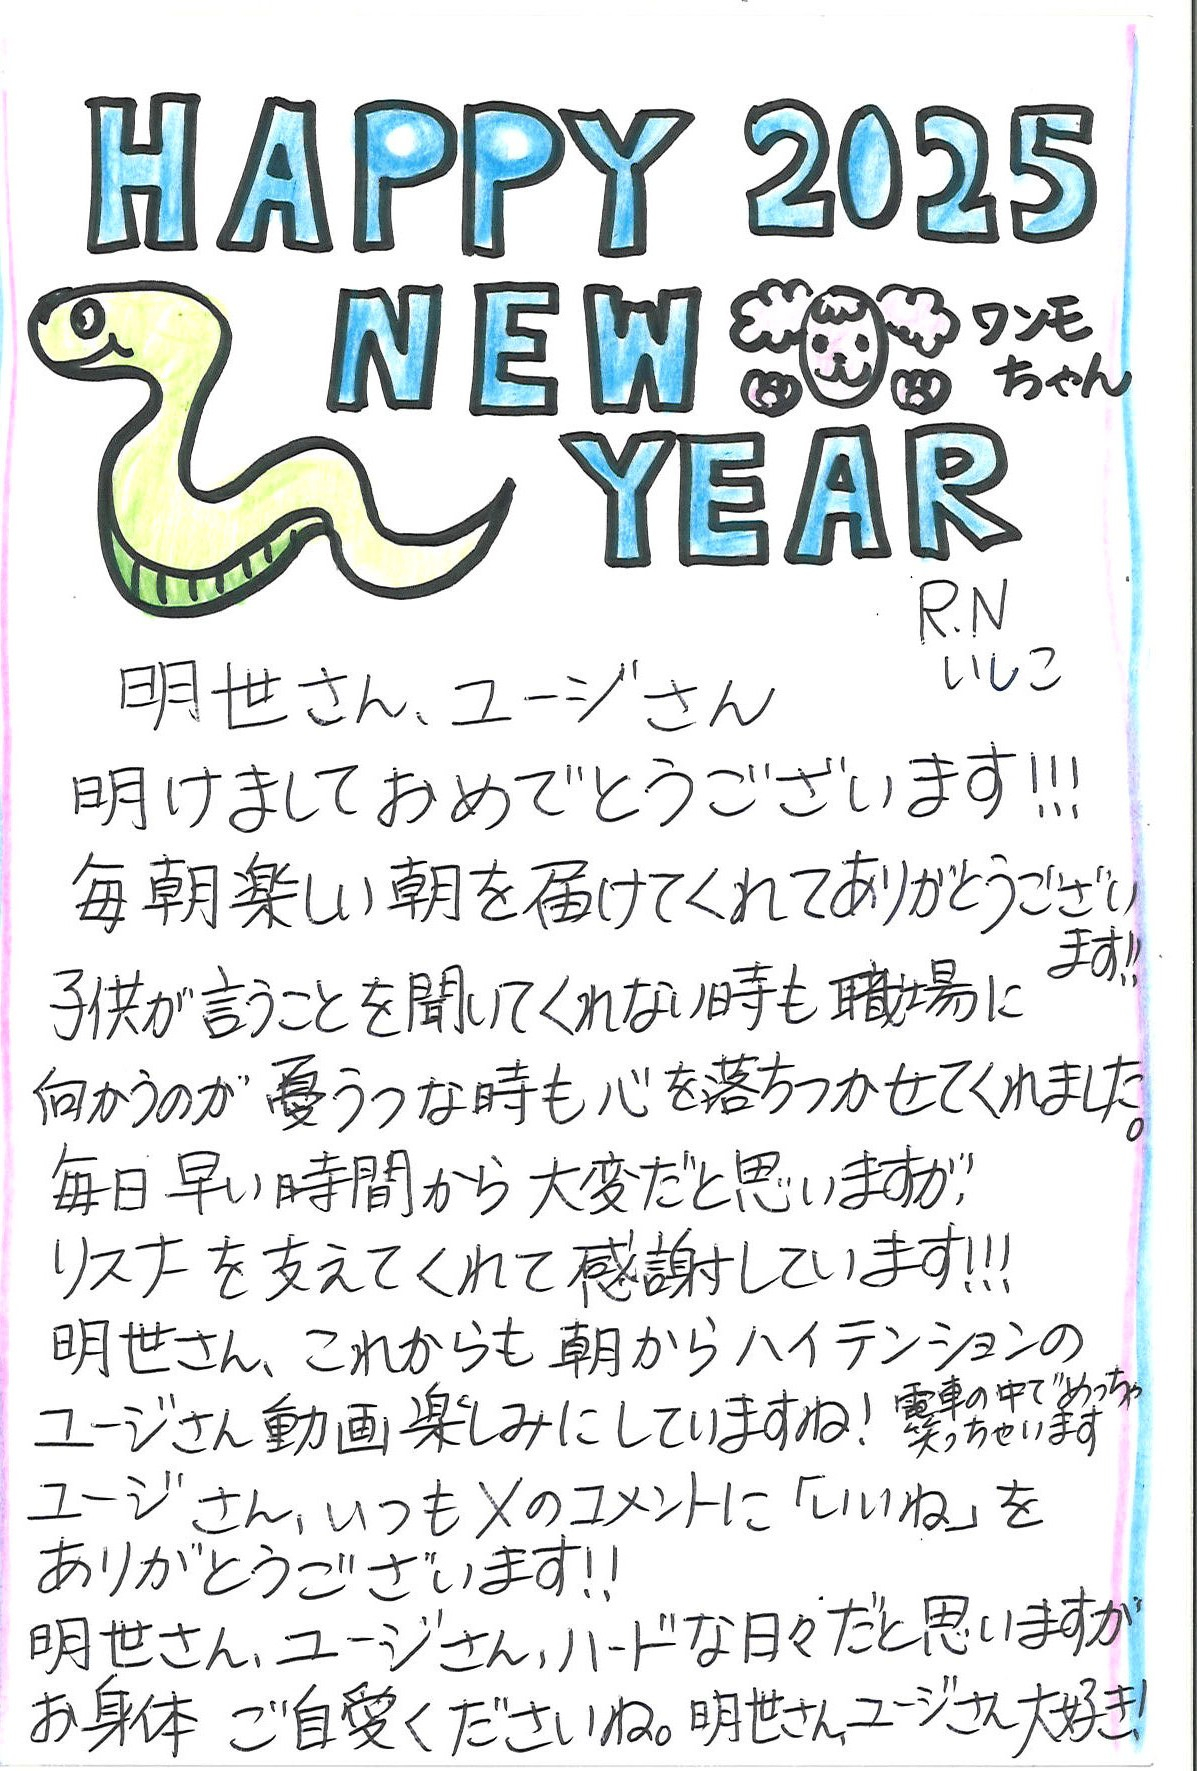 HAPPY 2025
NEW
ワンモ
ちゃん
YEAR
R.N
いしこ
明世さん、ユージさん
明けましておめでとうございます!!!
毎朝楽しい朝を届けてくれてありがとうござい
ます!!
子供が言うことを聞いてくれない時も職場に
向かうのが憂うつな時も心を落ちつかせてくれました。
毎日早い時間から大変だと思いますが、
リスナーを支えてくれて感謝しています!!!
明世さん、これからも朝からハイテンションの
ユージさん動画楽しみにしていますね!
電車の中でめっちゃ
笑っちゃいます
ユージさん、いつもXのコメントに「いいね」を
ありがとうございます!!
明世さん、ユージさん、ハードな日々だと思いますが
お身体ご自愛くださいね。明世さん、ユージさん大好き!